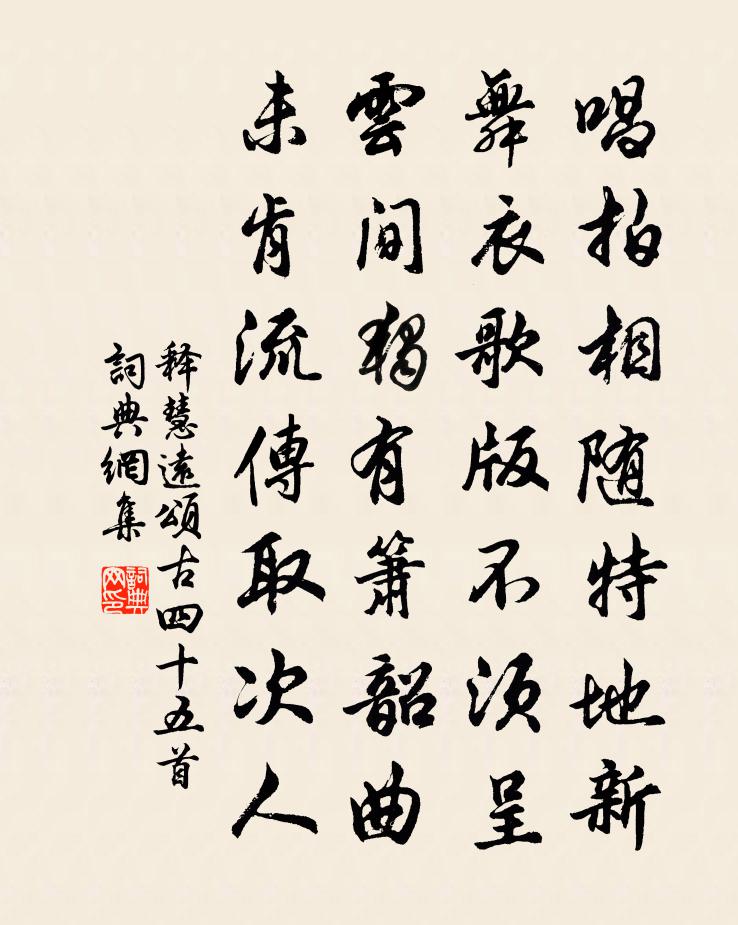 唱拍相随特地新
舞衣歌版不须呈
雲间獨有箫韶曲
未肯流傳取次人
释慧遠頌古四十五首
詞典網集
詞典網印